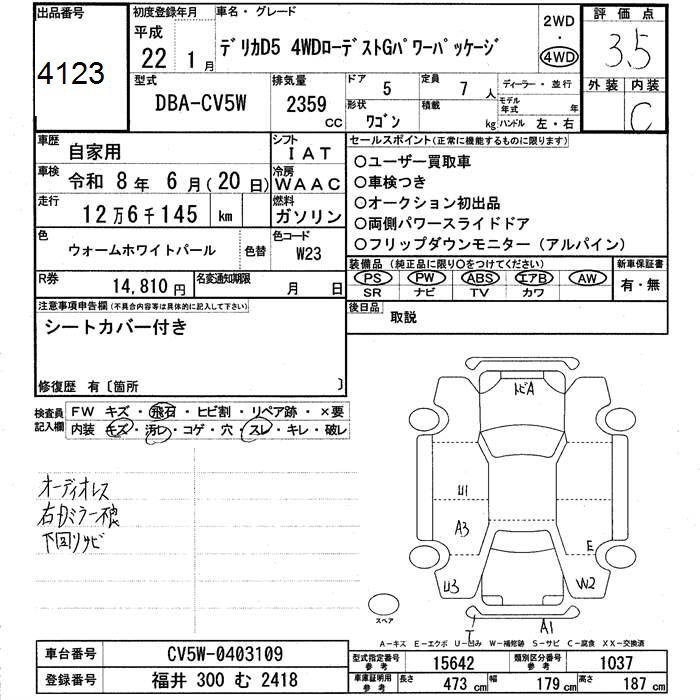 出品番号
4123
初度登録年月
平成
22 1 月
車名・グレード
デリカD5 4WDローデストGパワーパッケージ
2WD
・
4WD
評価点
3.5
外装 内装
C
型式
DBA-CV5W
排気量
2359
CC
ドア
5
定員
7 人
形状
ワゴン
積載
kg
ディーラー・並行
モデル年式 年
ハンドル 左・右
車歴
自家用
シフト
IAT
車検
令和 8 年 6 月(20 日)
冷房
WAAC
走行
12万6千145 km
燃料
ガソリン
色
ウォームホワイトパール
色替
色コード
W23
R券
14,810 円
名変通知期限
月 日
セールスポイント(正常に機能するものに限ります)
○ユーザー買取車
○車検つき
○オークション初出品
○両側パワースライドドア
○フリップダウンモニター(アルパイン)
装備品(純正品に限り○をつけてください)
PS PW ABS エアB AW
SR ナビ TV カワ
新車保証書
有・無
後日品
取説
注意事項申告欄(不具合内容等は具体的に記入して下さい)
シートカバー付き
修復歴 有〔箇所 〕
検査員
記入欄
FW キズ・飛石・ヒビ割・リペア跡・×要
内装 キズ・汚レ・コゲ・穴・スレ・キレ・破レ
オーディオレス
下回りサビ
トビA
U1
A3
E
U3
W2
T
A1
スペア
A-キズ E-エクボ U-凹み W-補修跡 S-サビ C-腐食 XX-交換済
車台番号
CV5W-0403109
登録番号
福井 300 む 2418
型式指定番号
参考
15642
類別区分番号
参考
1037
車庫証明用
参考
長さ 473 cm
幅 179 cm
高さ 187 cm